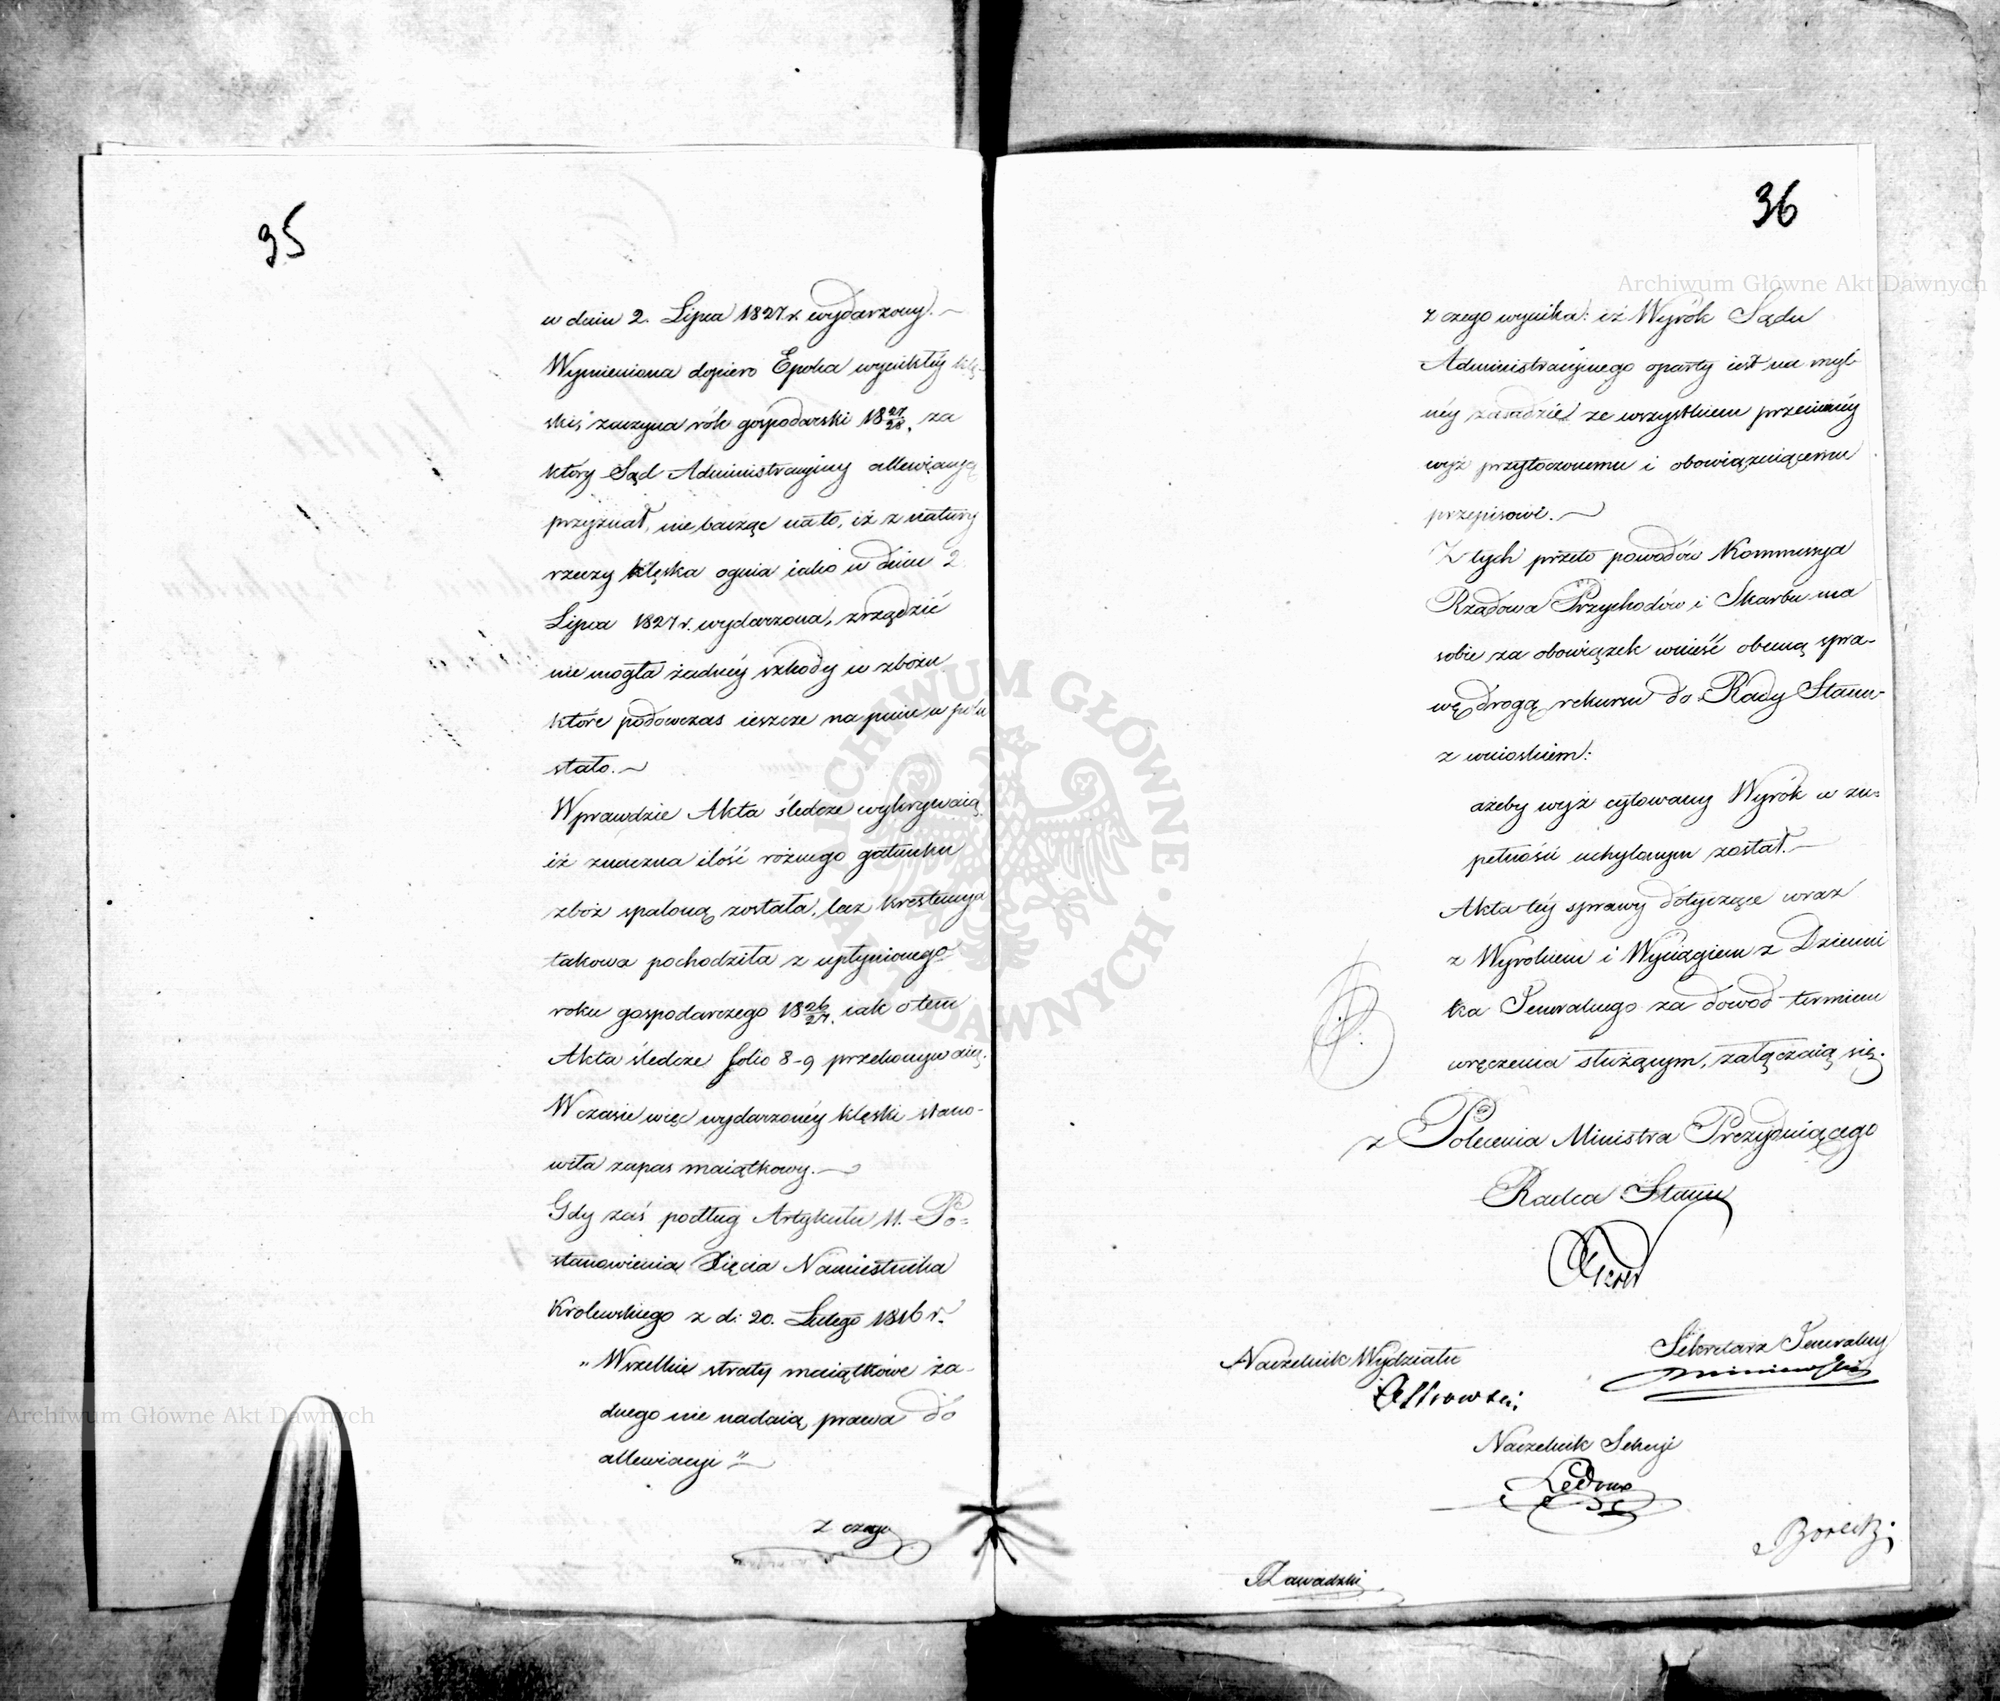 35
w dniu 2. Lipca 1827 r wydarzony. —
Wymieniona dopiero Epoka wynikłéy klę-
ski, zaczyna rók gospodarski 18 27/28. za
który Sąd Administracyiny allewiacyą
przyznał, nie bacząc na to, iż z natury
rzeczy klęska ognia iako w dniu 2
Lipca 1827 r. wydarzona, zrządzić
nie mogła żadnéy szkody w zbożu
które podowczas ieszcze na pniu w polu
stało. —
Wprawdzie Akta śledcze wykrywaią,
iż znaczna ilość rożnego gatunku
zbóż spaloną została, lecz krestencya
takowa pochodziła z upłynionego
roku gospodarczego 18 26/27. iak o tem
Akta śledcze folio 8-9 przekonywaią.
W czasie więc wydarzonéy klęski stano-
wiła zapas maiątkowy. —
Gdy zaś podług Artykułu 11. Po=
stanowienia Xięcia Namiestnika
Królewskiego z d: 20. Lutego 1816 r.
„Wszelkie straty maiątkówe ża-
dnego nie nadaią prawa do
allewiacyi" —
Z czego
36
z czego wynika: iż Wyrók Sądu
Administracyinego oparty iest na myl-
néy zasadzie ze wszystkiem przeciwnéy
wyż przytoczonemu i obowiązuiącemu
przepisowi. —
Z tych przeto powodów Kommissya
Rządowa Przychodów i Skarbu ma
sobie za obowiązek wnieść obecną spra-
wę drogą rekursu do Rady Stanu
z wnioskiem:
ażeby wyż cytowany Wyrók w zu=
pełności uchylonym został. —
Akta téy sprawy dotyczące wraz
z Wyrokiem i Wyciągiem z Dzienni
ka Jeneralnego za dowod terminu
wręczenia służącym, załączaią się.
z Polecenia Ministra Prezyduiącego
Radca Stanu
Naczelnik Wydziału
Sekretarz Jeneralny
Ostrowski
Naczelnik Sekcyi
Zawadzki
Archiwum Główne Akt Dawnych
Archiwum Główne Akt Dawnych
ARCHIWUM GŁÓWNE
AKT DAWNYCH